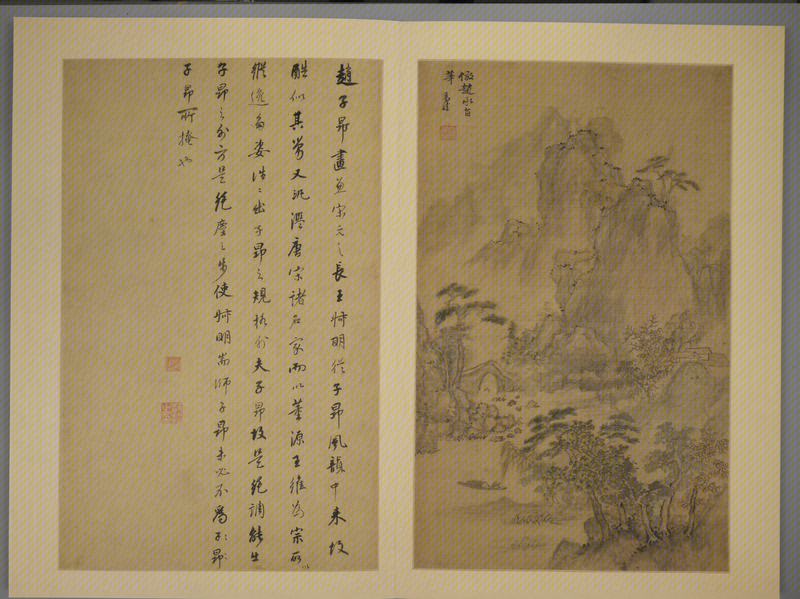 倣趙承旨
筆
趙子昂畫兼宋元之長王叔明從子昂風韻中來故
酷似其舅又汎濫唐宋諸名家而以董源王維為宗所以
縱逸多姿往往出子昂之規格外夫子昂故是絕調能出
子昂之外方是絕塵之步使叔明耑師子昂未必不爲子昂
子昂所掩也